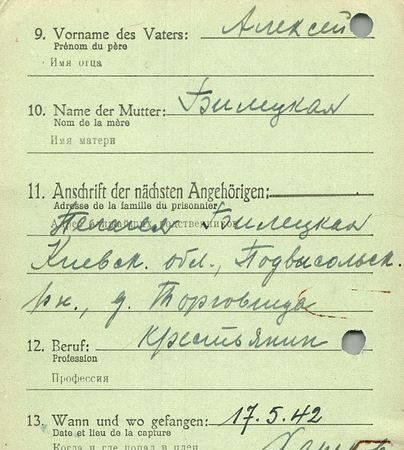 9. Vorname des Vaters: Алексей
Prénom du père
Имя отца
10. Name der Mutter: Билецкая
Nom de la mère
Имя матери
11. Anschrift der nächsten Angehörigen:
Adresse de la famille du prisonnier
Адрес ближайших родственников
Пелагея Билецкая
Киевск. обл., Подвысольск.
рн., д. Торговица
12. Beruf: крестьянин
Profession
Профессия
13. Wann und wo gefangen: 17.5.42
Date et lieu de la capture
Когда и где попал в плен